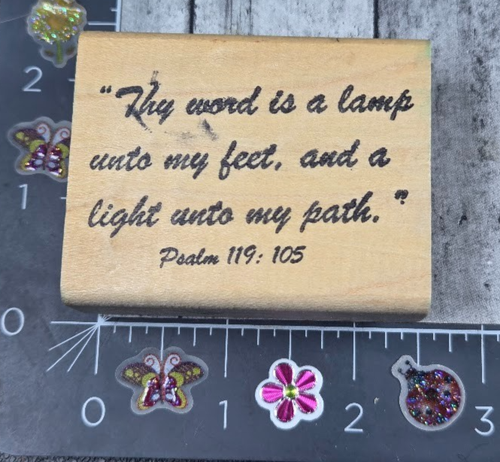 "Thy word is a lamp
unto my feet, and a
light unto my path."
Psalm 119: 105
2
1
0
0 1 2 3